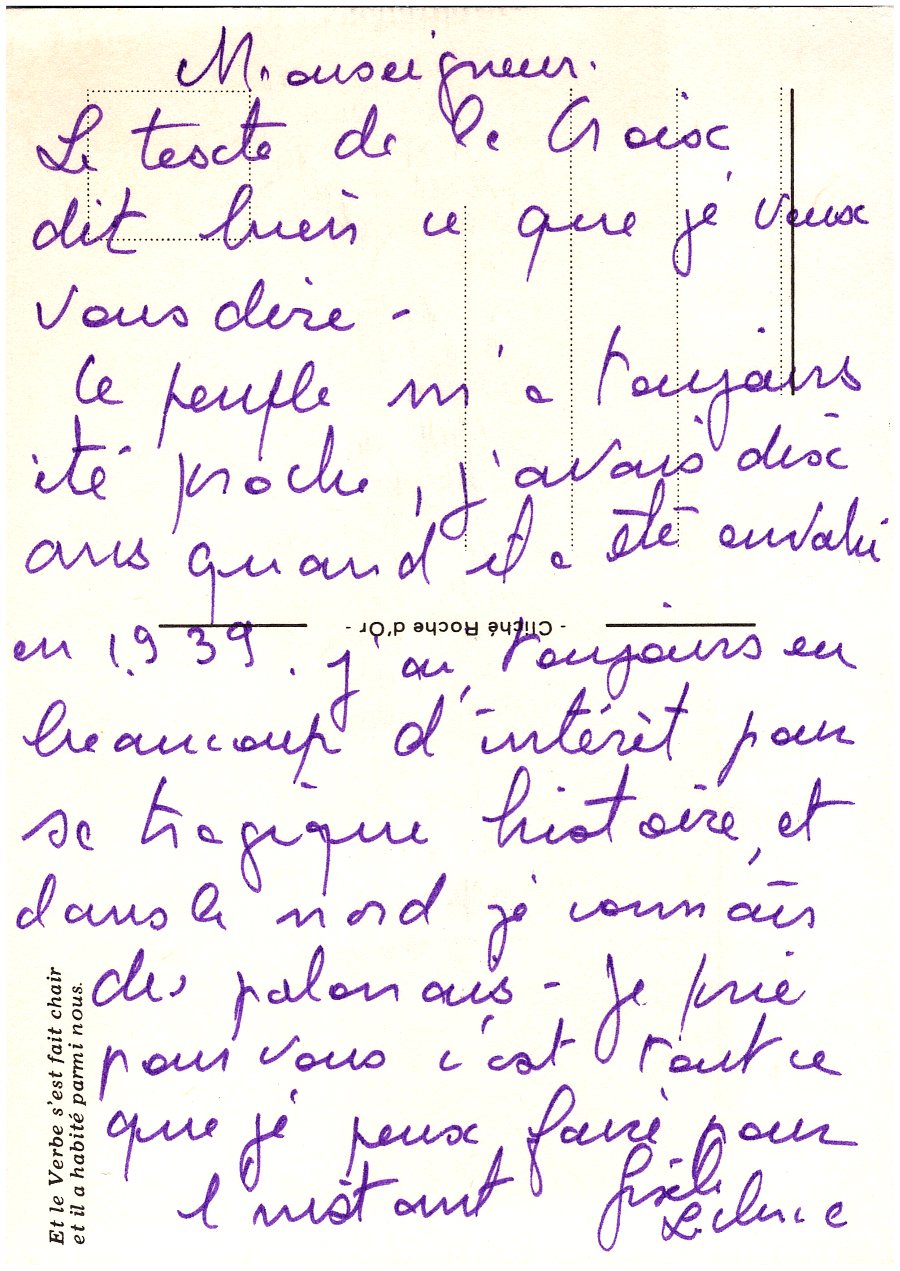 Monseigneur.
Le texte de la Croix
dit bien ce que je veux
vous dire -
Ce peuple m'a toujours
été proche, j'avais dix
ans quand il a été envahi
en 1939. j'ai toujours eu
beaucoup d'intérêt pour
sa tragique histoire, et
dans le nord je connais
des polonais - Je prie
pour vous c'est tout ce
que je peux faire pour
l'instant Gisèle
- Cliché Roche d'Or -
Et le Verbe s'est fait chair
et il a habité parmi nous.